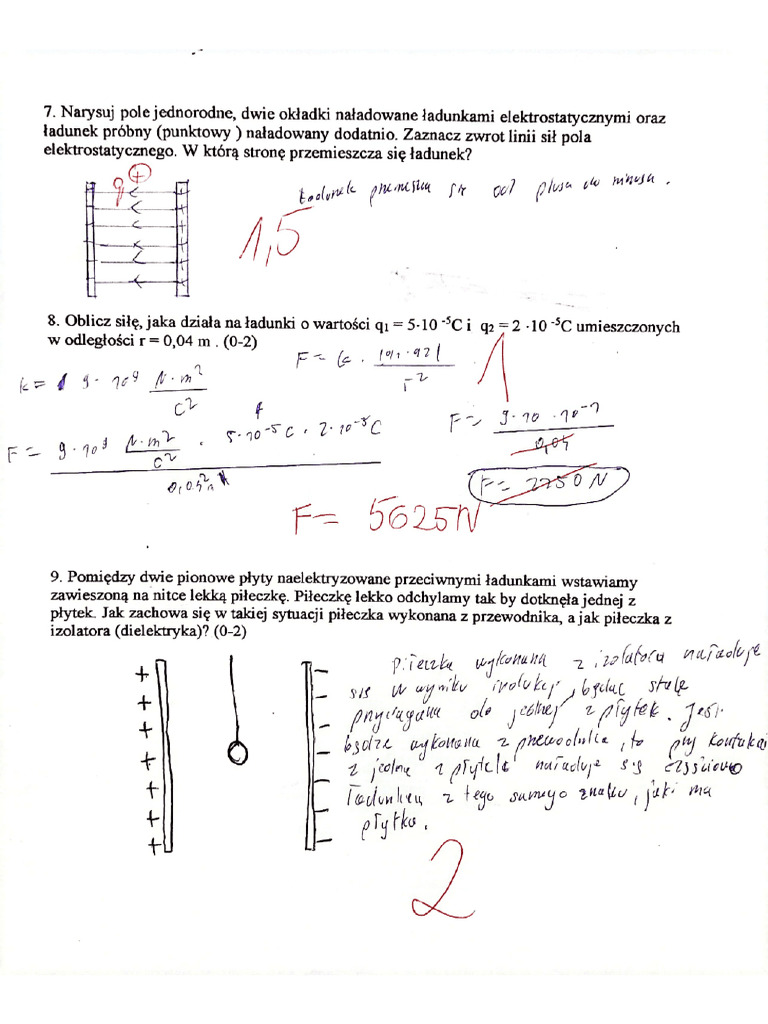 7. Narysuj pole jednorodne, dwie okładki naładowane ładunkami elektrostatycznymi oraz
ładunek próbny (punktowy ) naładowany dodatnio. Zaznacz zwrot linii sił pola
elektrostatycznego. W którą stronę przemieszcza się ładunek?
q +
Ładunek przemieszcza się od plusa do minusa .
1,5
8. Oblicz siłę, jaka działa na ładunki o wartości q1 = 5·10 -5C i q2 = 2 ·10 -5C umieszczonych
w odległości r = 0,04 m . (0-2)
F = k · |q1 · q2| / r2
1
k = 9 · 10 9 N · m2 / C2
F = 9 · 10 9 N·m2 / C2 · 5·10-5 C · 2·10-5 C / 0,042
F = 9·10 ·10-1 / 0,04
F = 2250 N
F = 5625N
9. Pomiędzy dwie pionowe płyty naelektryzowane przeciwnymi ładunkami wstawiamy
zawieszoną na nitce lekką piłeczkę. Piłeczkę lekko odchylamy tak by dotknęła jednej z
płytek. Jak zachowa się w takiej sytuacji piłeczka wykonana z przewodnika, a jak piłeczka z
izolatora (dielektryka)? (0-2)
Piłeczka wykonana z izolatora naładuje
się w wyniku indukcji, będąc stale
przyciągana do jednej z płytek. Jeśli
będzie wykonana z przewodnika, to przy kontakcie
z jedną z płytek naładuje się częściowo
ładunkiem z tego samego znaku, jaki ma
płytka.
+ + + + + + +
− − − − − − −
2